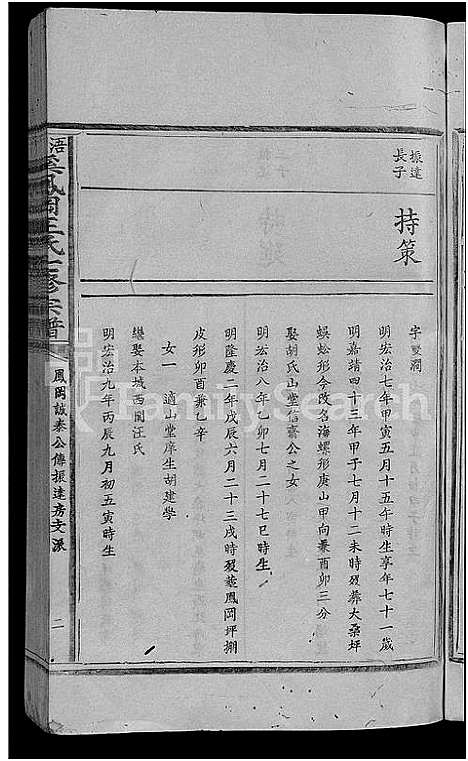 振達
長子
持策
字雙澗
明宏治七年甲寅五月十五午時生享年七十一歲
明嘉靖四十三年甲子七月十二未時歿葬大桑坪
蜈蚣形今改名海螺形庚山甲向兼酉卯三分
娶胡氏山堂信齋公之女
明宏治八年乙卯七月二十七巳時生
明隆慶二年戊辰六月二十三戌時歿葬鳳岡坪捌
皮形卯酉兼乙辛
女一 適山堂庠生胡建學
繼娶本城西閣汪氏
明宏治九年丙辰九月初五寅時生
鳳岡王氏 修宗譜
鳳岡誠泰公傳振達房文派
二
FamilySearch